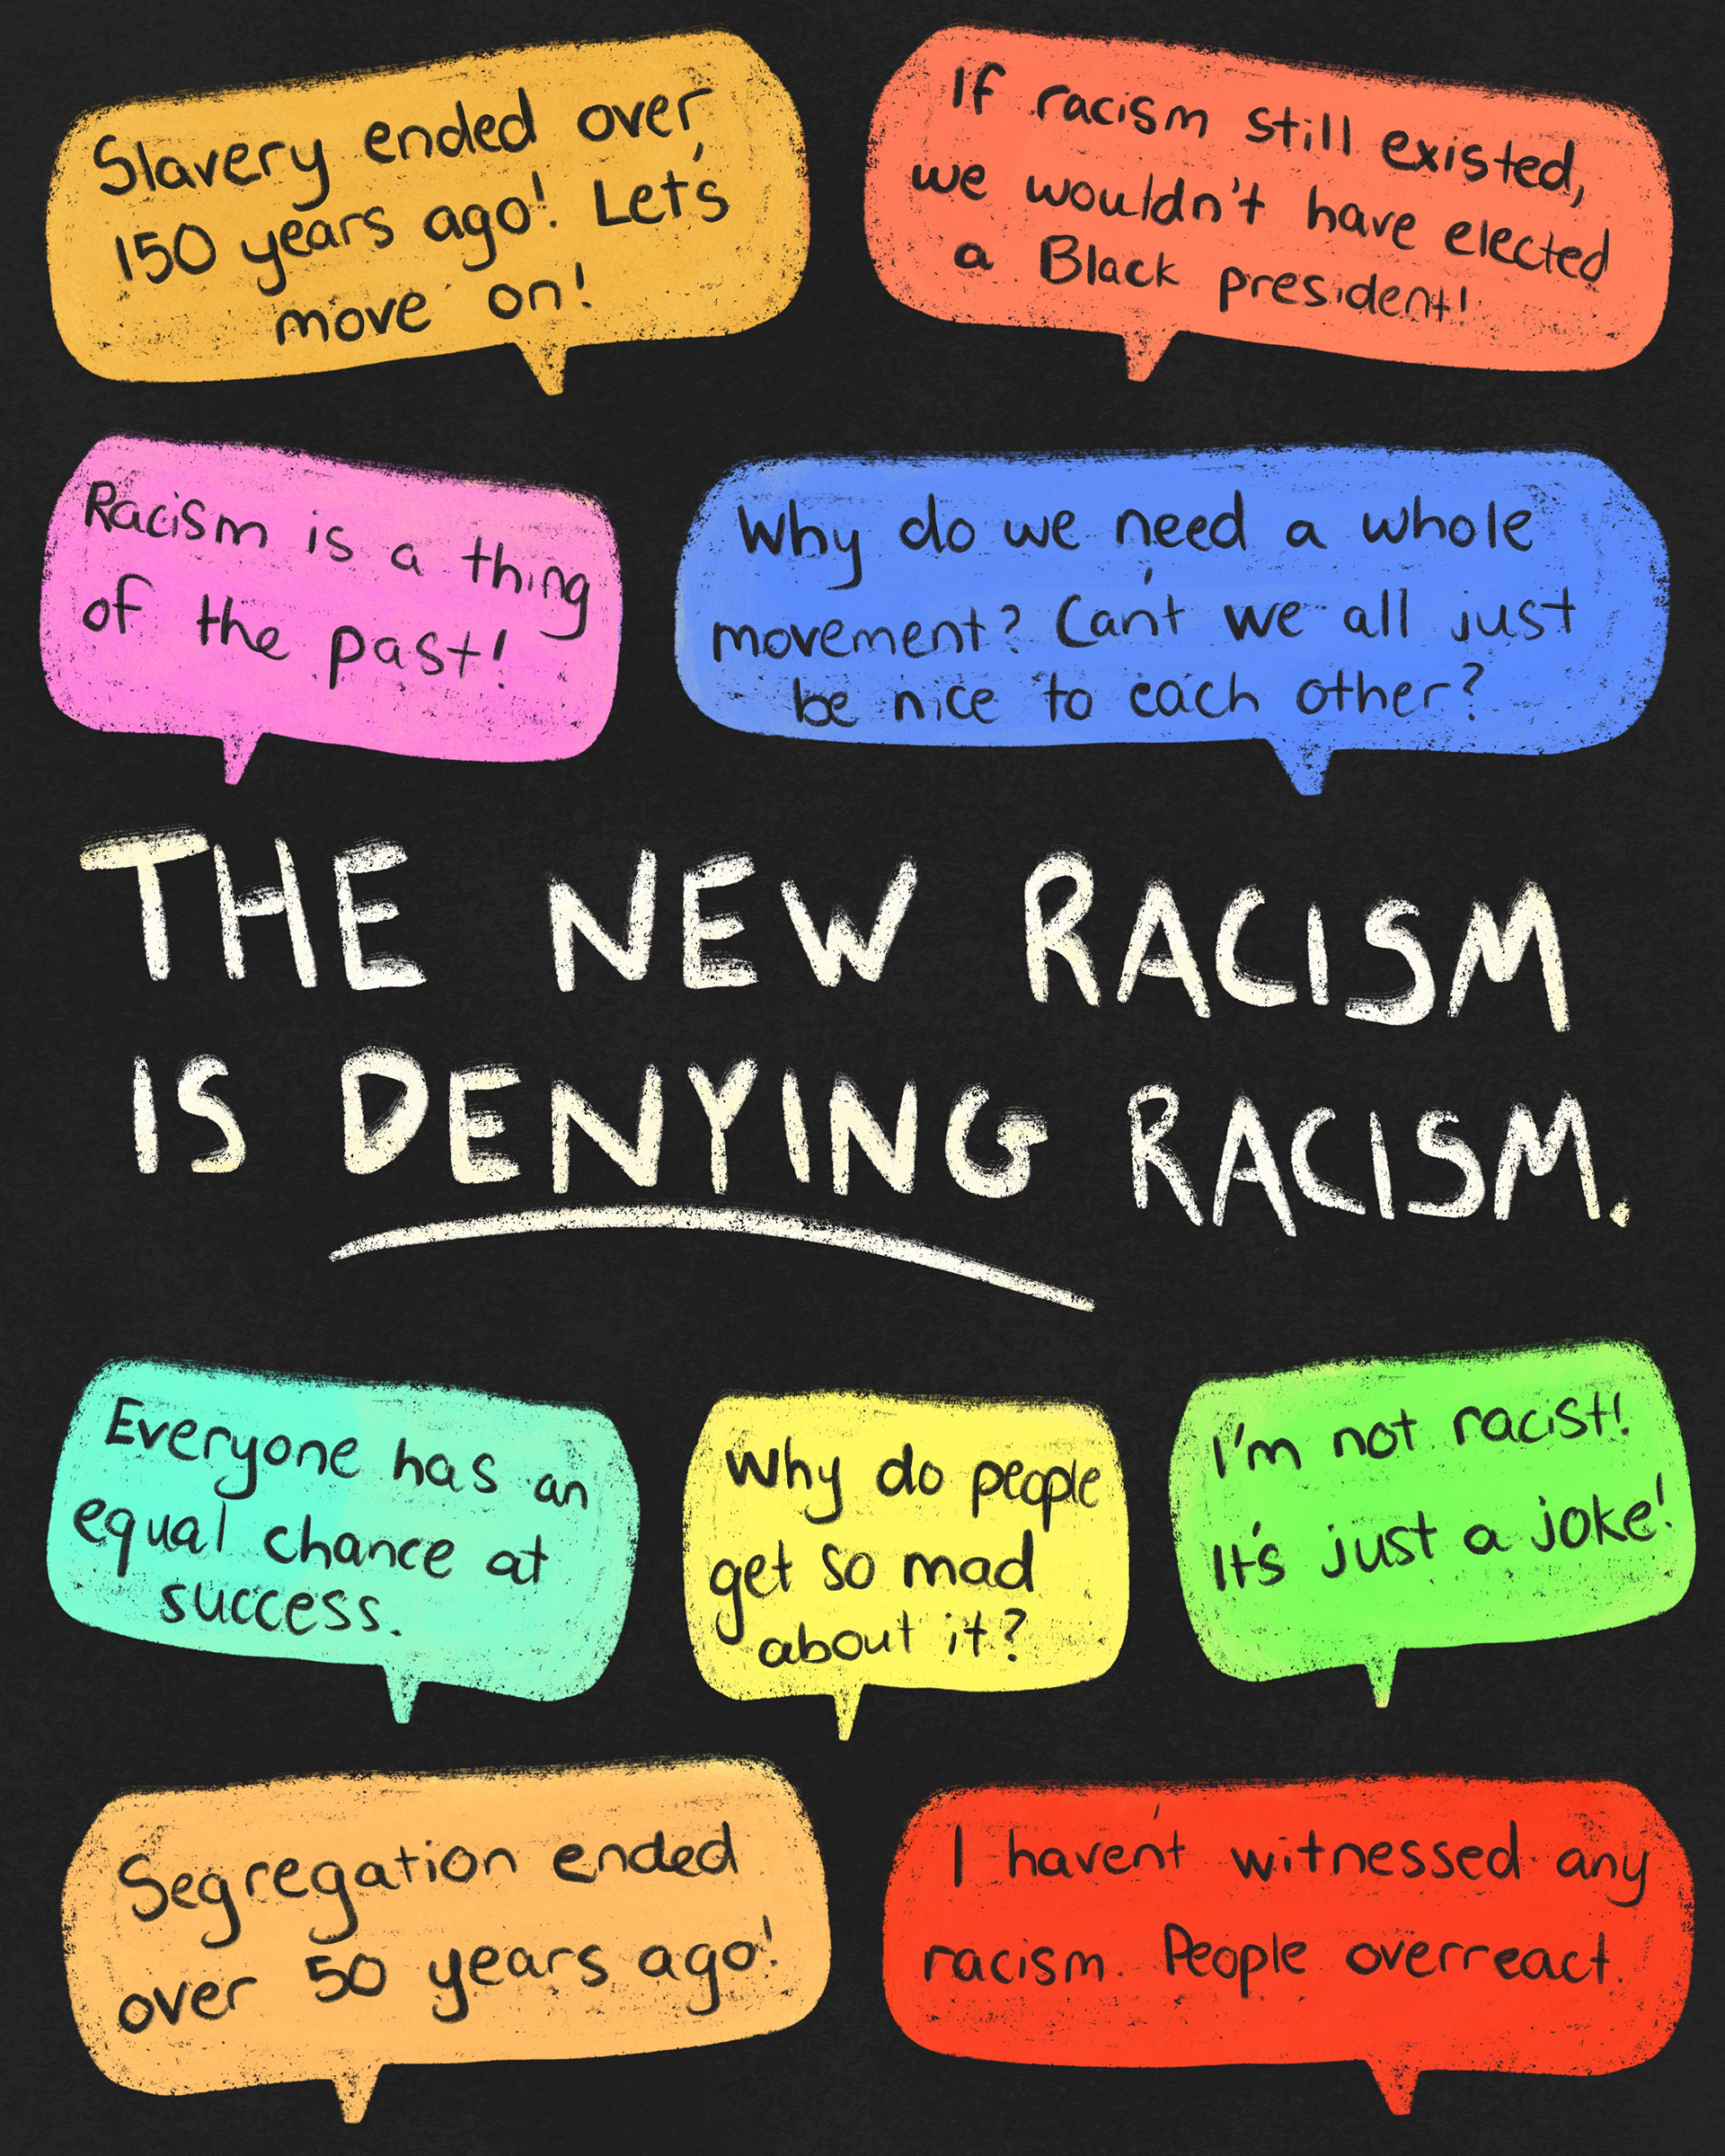 Slavery ended over
150 years ago! Let's
move on!
If racism still existed,
we wouldn't have elected
a Black president!
Racism is a thing
of the past!
Why do we need a whole
movement? Can't we all just
be nice to each other?
THE NEW RACISM
IS DENYING RACISM.
Everyone has an
equal chance at
success.
Why do people
get so mad
about it?
I'm not racist!
It's just a joke!
Segregation ended
over 50 years ago!
I haven't witnessed any
racism. People overreact.